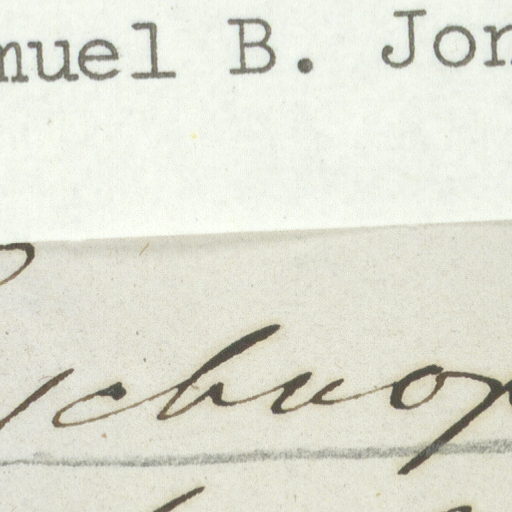 muel B. Jon
ychnop